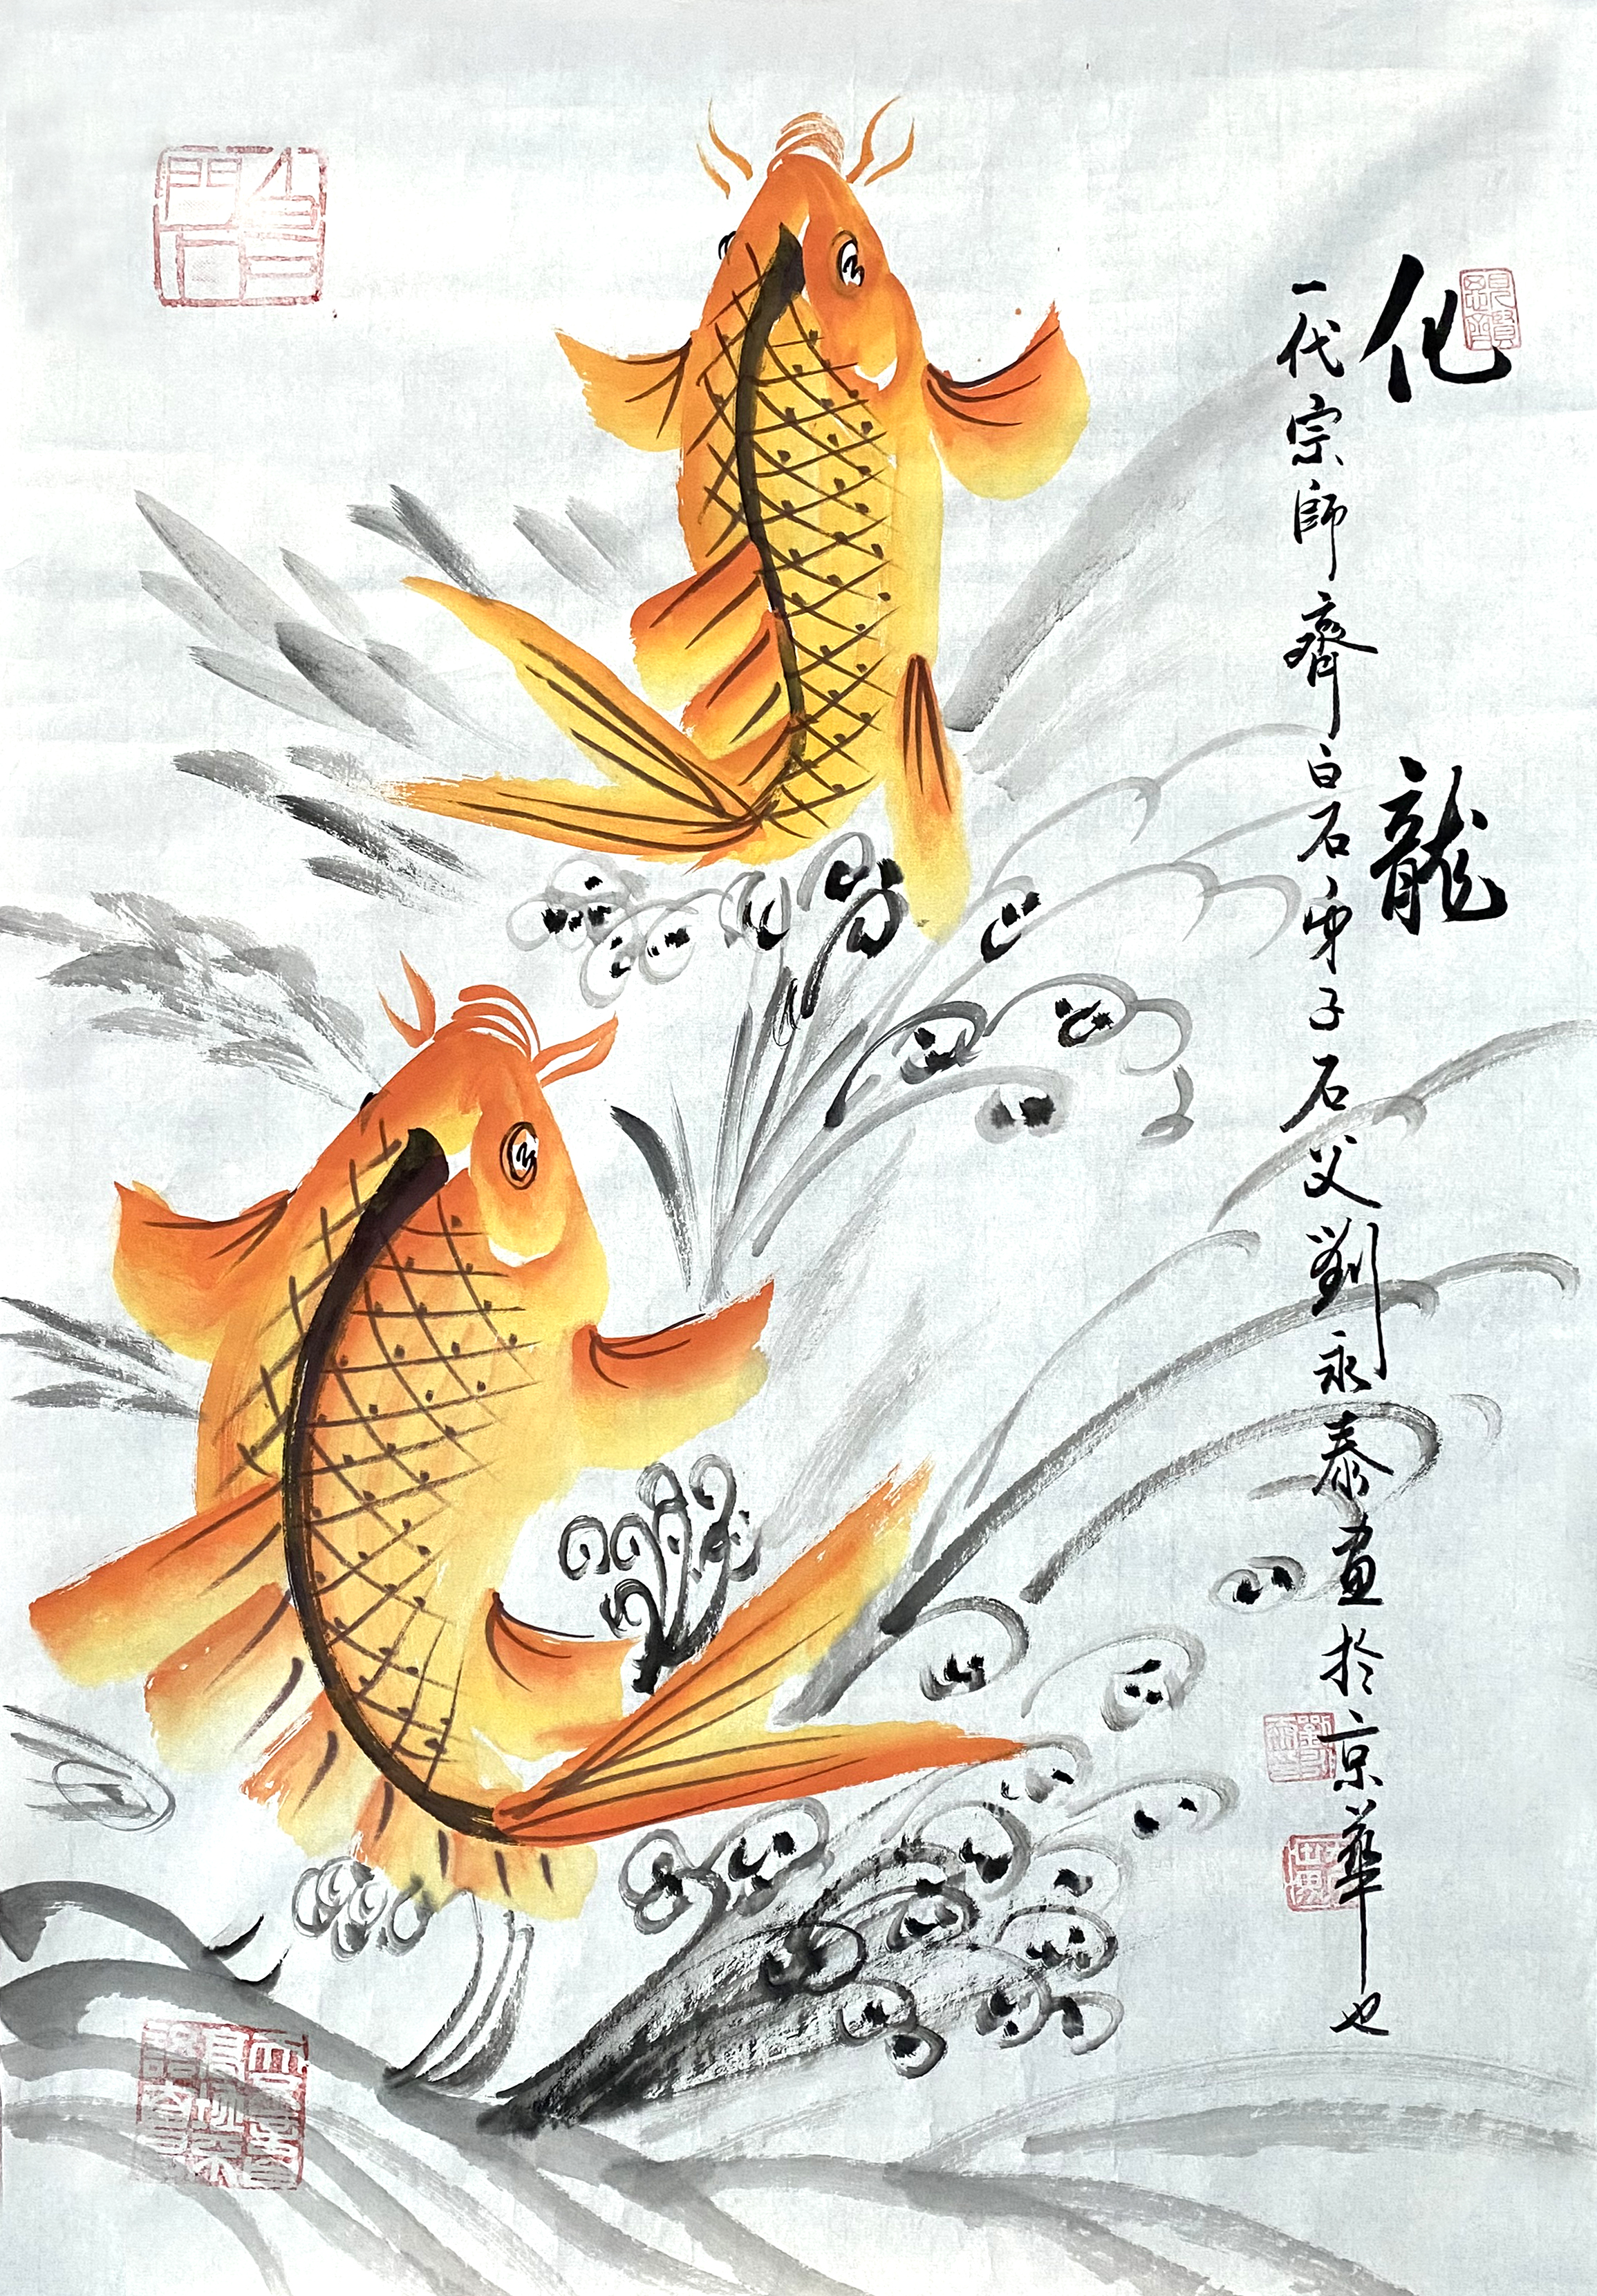 化龍
一代宗師齊白石弟子石父劉永泰畫於京華也